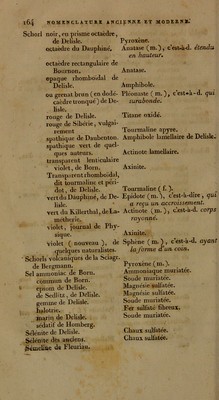 164 NOMENCLATURE ANCIENNE ET MODERNE.
Schorl noir, en prisme octaèdre,
de Delisle. Pyroxène.
octaèdre du Dauphiné, Anatase (m.), c'est-à-d. étendu
en hauteur.
octaèdre rectangulaire de
Bournon. Anatase.
opaque rhomboïdal de
Delisle. Amphibole.
ou grenat brun (en dodé- Pléonaste (m.), c'est-à-d. qui
caèdre tronqué) de De- surabonde.
lisle.
rouge de Delisle. Titane oxidé.
rouge de Sibérie, vulgai-
rement Tourmaline apyre.
spathique de Daubenton. Amphibole lamellaire de Delisle.
spathique vert de quel-
ques auteurs. Actinote lamellaire.
transparent lenticulaire
violet, de Born. Axinite.
Transparent rhomboïdal,
dit tourmaline et péri-
dot, de Delisle. Tourmaline (f.).
vert du Dauphiné, de De- Epidote (m.), c'est-à-dire, qui
lisle. a reçu un accroissement.
vert du Killerthal, de La- Actinote (m.), c'est-à-d. corps
métherie. rayonné.
violet, journal de Phy-
sique. Axinite.
violet (nouveau), de Sphène (m.), c'est-à-d. ayant
quelques naturalistes. la forme d'un coin.
Schorls volcaniques de la Sciagr.
de Bergmann. Pyroxène (m.).
Sel ammoniac de Born. Ammoniaque muriatée.
commun de Born. Soude muriatée.
epsom de Delisle. Magnésie sulfatée.
de Sedlitz, de Delisle. Magnésie sulfatée.
gemme de Delisle. Soude muriatée.
halotric. Fer sulfaté fibreux.
marin de Delisle. Soude muriatée.
sédatif de Homberg.
Sélénite de Delisle. Chaux sulfatée.
Sélénite des anciens. Chaux sulfatée.
de Fleurian.